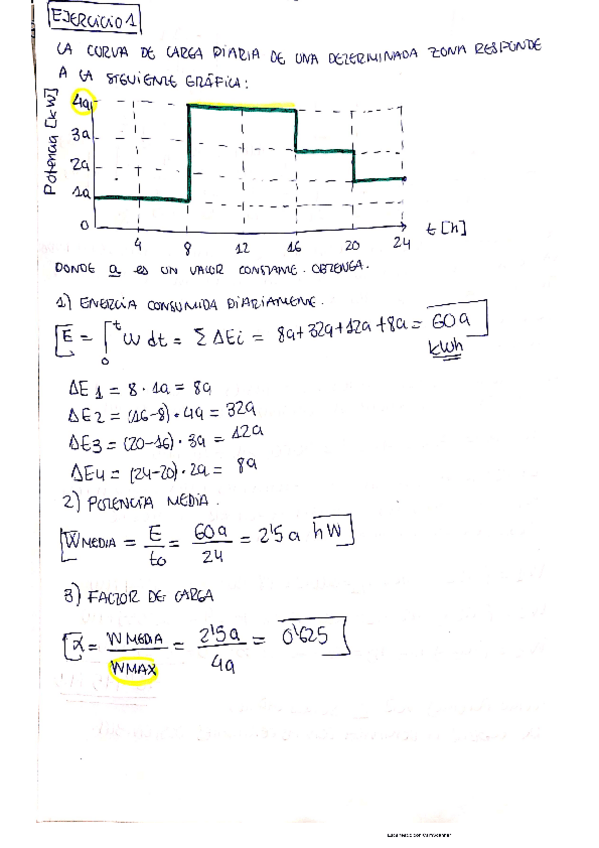 EJERCICIO 1
LA CURVA DE CARGA DIARIA DE UNA DETERMINADA ZONA RESPONDE
A LA SIGUIENTE GRÁFICA:
Potencia [kW]
4a
3a
2a
1a
0
4 8 12 16 20 24
t [h]
DONDE a es UN VALOR CONSTANTE. OBTENGA.
1) ENERGÍA CONSUMIDA DIARIAMENTE.
E = ∫₀ᵗ W dt = Σ ΔEi = 8a+32a+12a+8a = 60a
kWh
ΔE1 = 8 · 1a = 8a
ΔE2 = (16-8) · 4a = 32a
ΔE3 = (20-16) · 3a = 12a
ΔE4 = (24-20) · 2a = 8a
2) POTENCIA MEDIA.
WMEDIA = E/to = 60a/24 = 2'5a kW
3) FACTOR DE CARGA
α = WMEDIA/WMAX = 2'5a/4a = 0'625